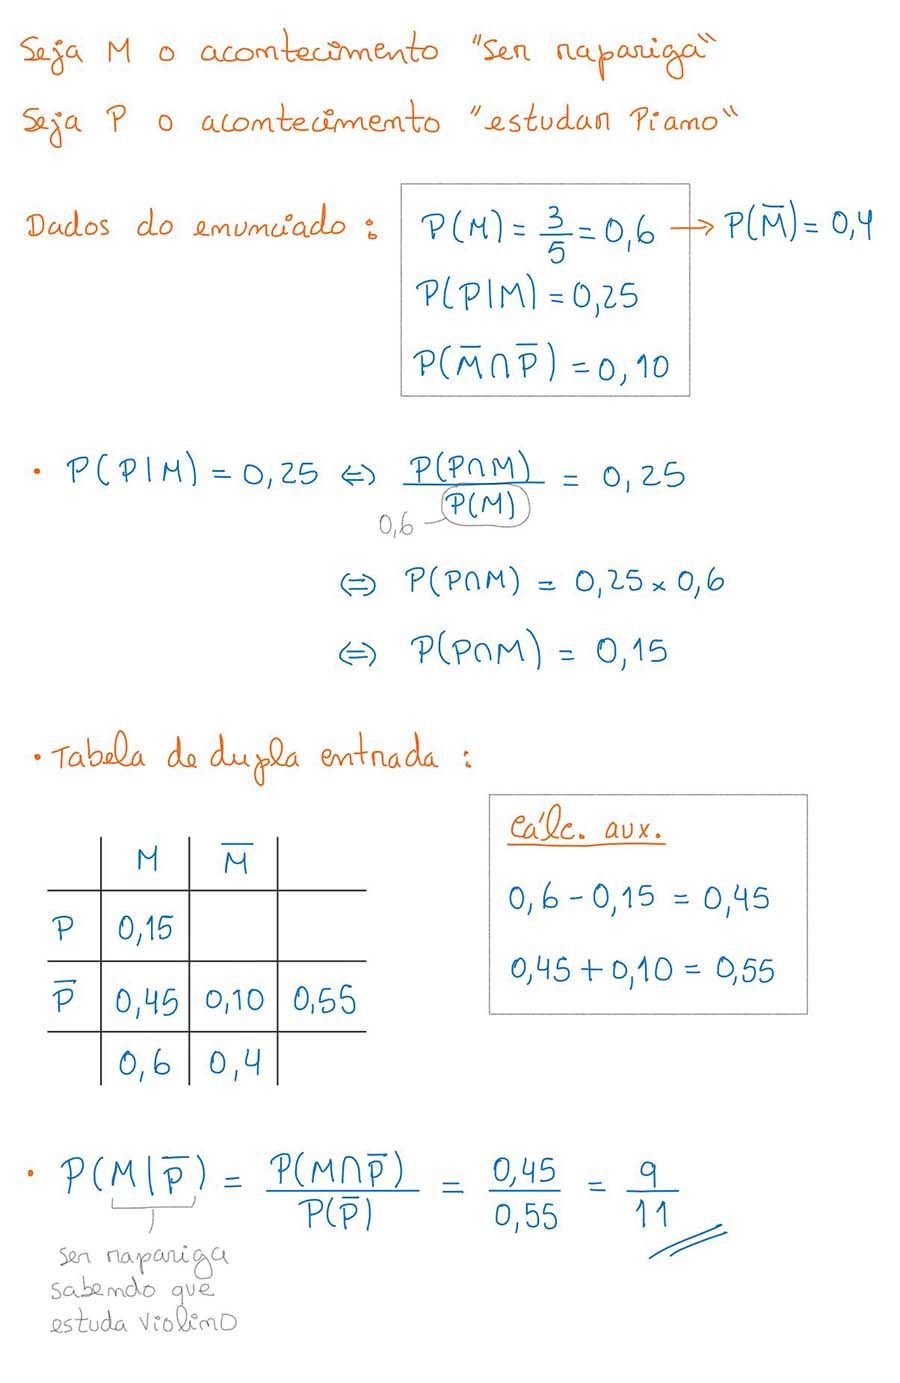 Seja M o acontecimento "ser rapariga"
Seja P o acontecimento "estudar Piano"
Dados do enunciado : P(M) = 3/5 = 0,6 → P(M̅) = 0,4
P(P|M) = 0,25
P(M̅ ∩ P̅) = 0,10
• P(P|M) = 0,25 ⇔ P(P∩M)/P(M) = 0,25
0,6
⇔ P(P∩M) = 0,25 × 0,6
⇔ P(P∩M) = 0,15
• Tabela de dupla entrada :
M M̅
P 0,15
P̅ 0,45 0,10 0,55
0,6 0,4
Cálc. aux.
0,6 - 0,15 = 0,45
0,45 + 0,10 = 0,55
• P(M|P̅) = P(M∩P̅)/P(P̅) = 0,45/0,55 = 9/11
ser rapariga
sabendo que
estuda violino